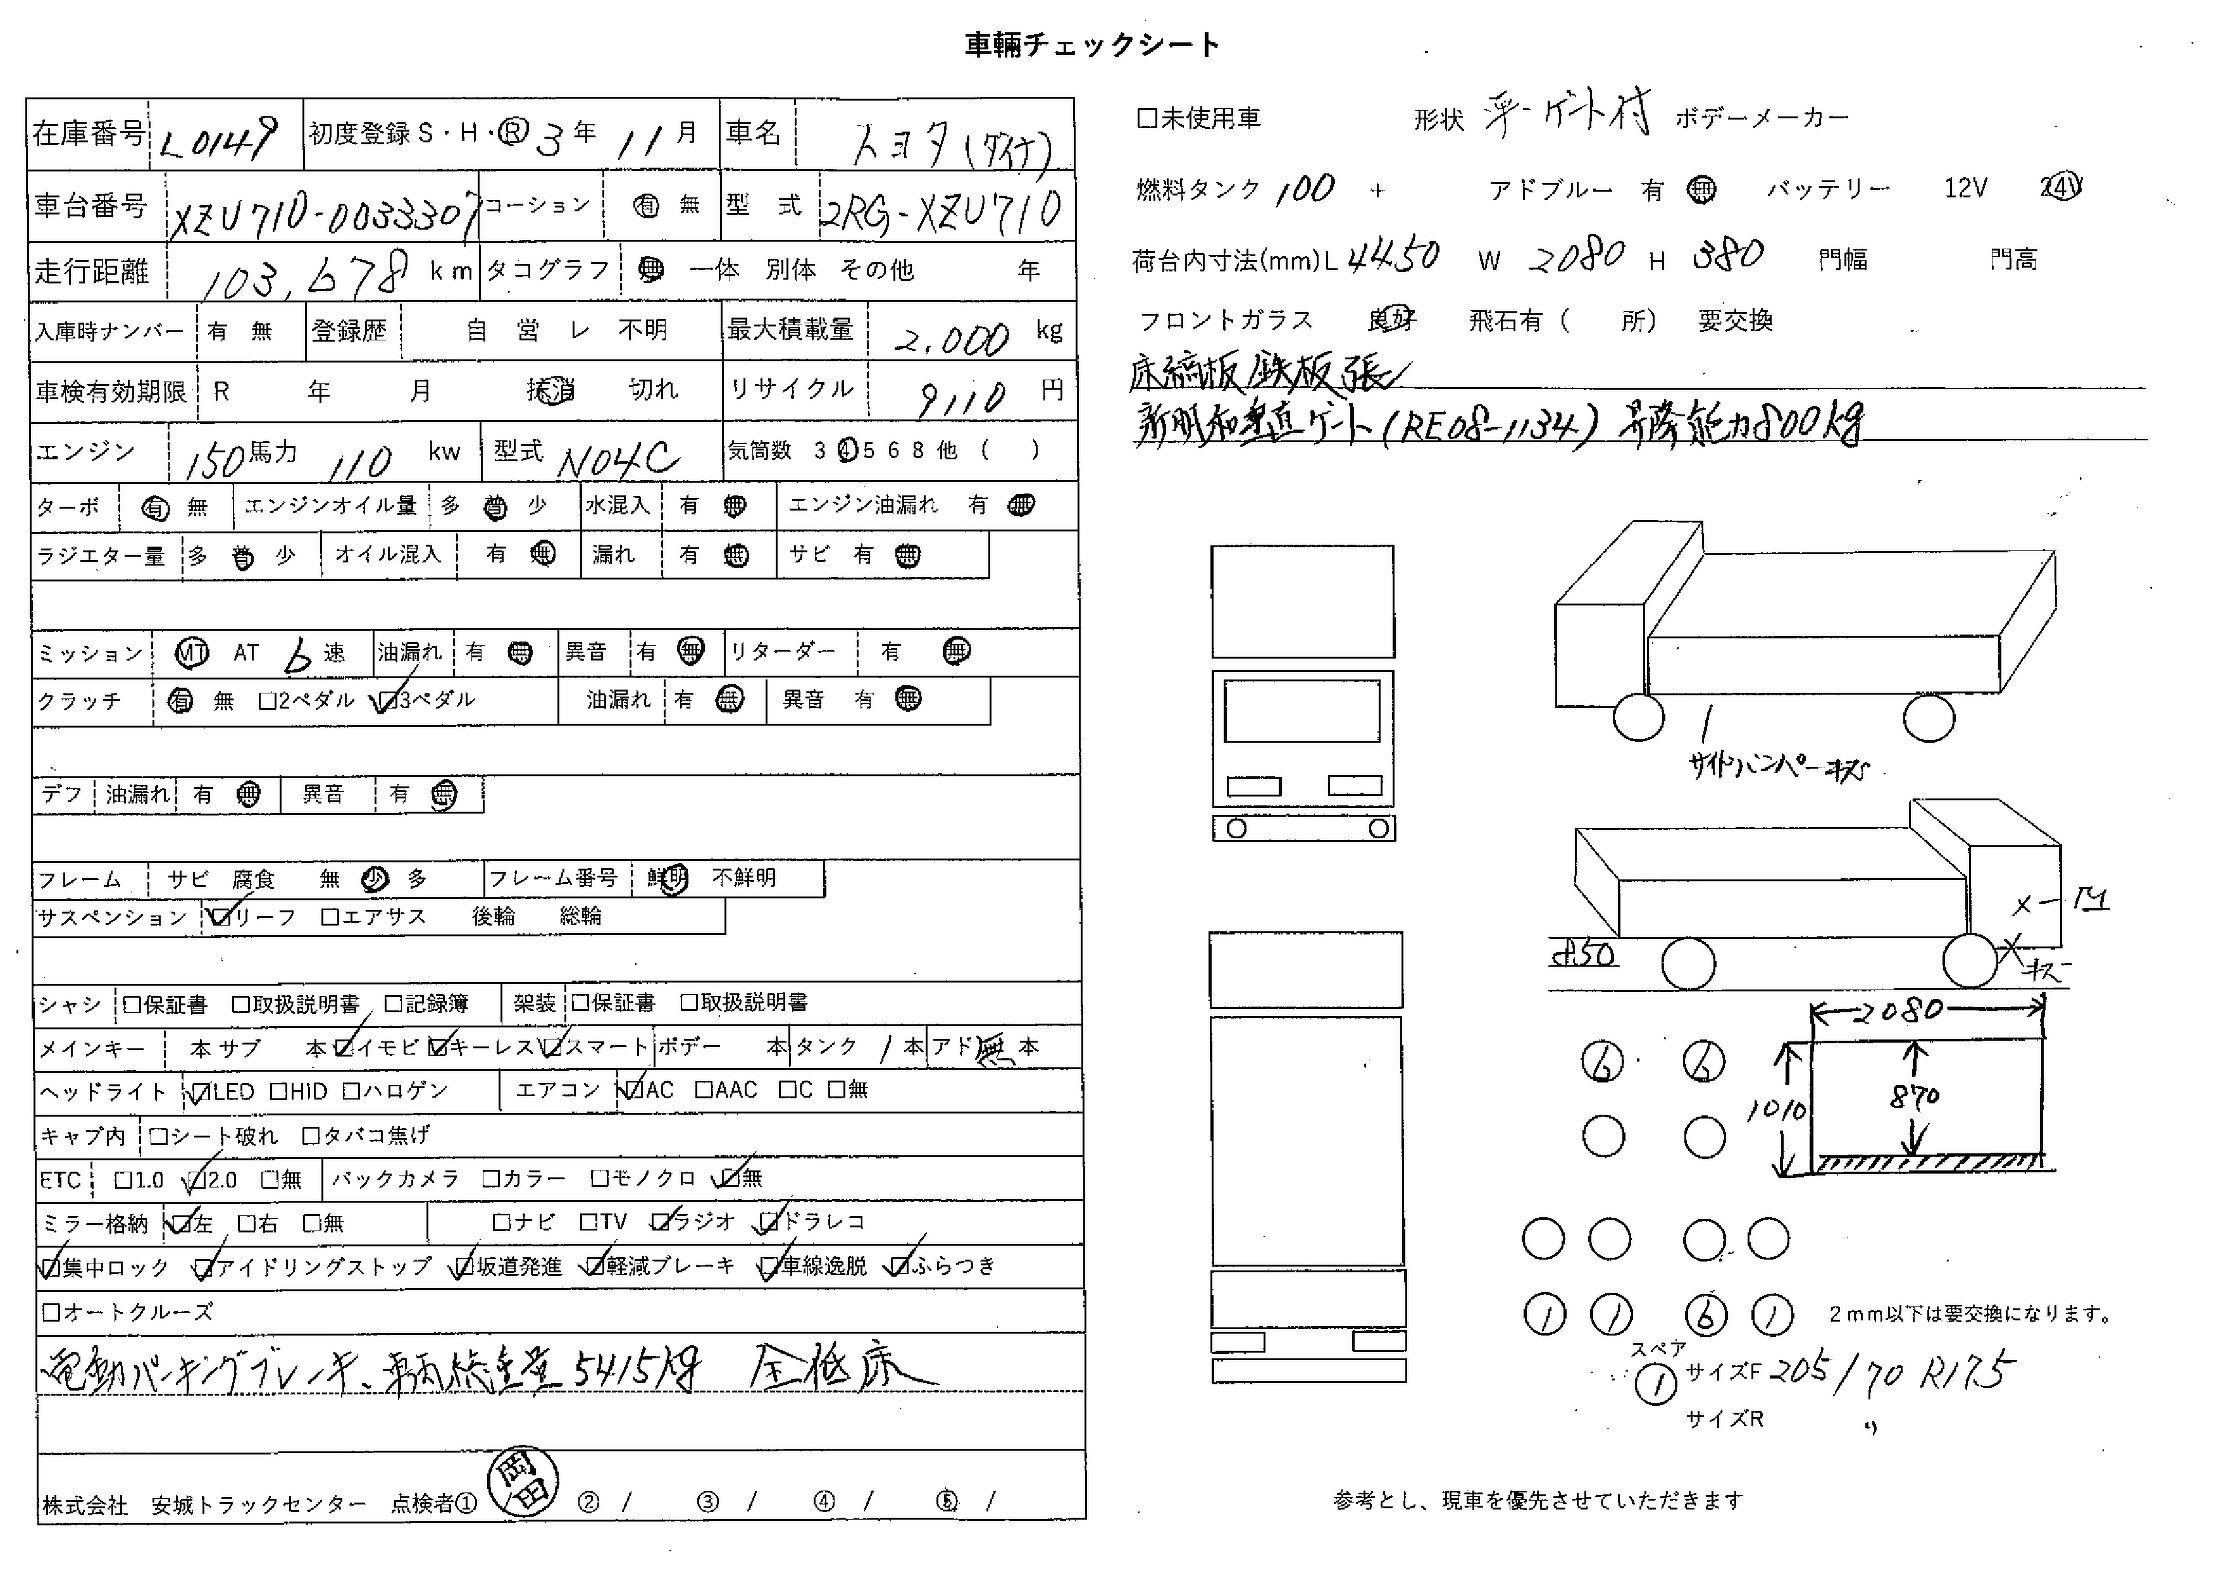 車輛チェックシート
在庫番号 L0149 初度登録 S・H・R 3年 11月 車名 トヨタ(ダイナ)
車台番号 XZU710-0033307 コーション 有 無 型式 2RG-XZU710
走行距離 103,678 km タコグラフ 無 一体 別体 その他 年
入庫時ナンバー 有 無 登録歴 自 営 レ 不明 最大積載量 2,000 kg
車検有効期限 R 年 月 抹消 切れ リサイクル 9,110 円
エンジン 150馬力 110 kw 型式 N04C 気筒数 3 4 5 6 8 他 ( )
ターボ 有 無 エンジンオイル量 多 普 少 水混入 有 無 エンジン油漏れ 有 無
ラジエター量 多 普 少 オイル混入 有 無 漏れ 有 無 サビ 有 無
ミッション MT AT 6速 油漏れ 有 無 異音 有 無 リターダー 有 無
クラッチ 有 無 □2ペダル ☑3ペダル 油漏れ 有 無 異音 有 無
デフ 油漏れ 有 無 異音 有 無
フレーム サビ 腐食 無 少 多 フレーム番号 鮮明 不鮮明
サスペンション ☑リーフ □エアサス 後輪 総輪
シャシ □保証書 □取扱説明書 □記録簿 架装 □保証書 □取扱説明書
メインキー 本 サブ 本 ☑イモビ ☑キーレス ☑スマート ボデー 本 タンク 1本 アド 無 本
ヘッドライト ☑LED □HID □ハロゲン エアコン ☑AC □AAC □C □無
キャブ内 □シート破れ □タバコ焦げ
ETC □1.0 ☑2.0 □無 バックカメラ □カラー □モノクロ ☑無
ミラー格納 ☑左 □右 □無 □ナビ □TV ☑ラジオ ☑ドラレコ
☑集中ロック ☑アイドリングストップ ☑坂道発進 ☑軽減ブレーキ ☑車線逸脱 ☑ふらつき
□オートクルーズ
電動パーキングブレーキ、車輌総重量5415kg 全低床
株式会社 安城トラックセンター 点検者① / 岡田 ② / ③ / ④ / ⑤ /
□未使用車 形状 平-ゲート付 ボデーメーカー
燃料タンク 100 + アドブルー 有 無 バッテリー 12V 24V
荷台内寸法(mm) L 4450 W 2080 H 380 門幅 門高
フロントガラス 良好 飛石有( 所) 要交換
床縞板鉄板張
新明和垂直ゲート(RE08-1134) 昇降能力800kg
サイドバンパーキズ
X 凹
850
X キズ
2080
1010
870
6 6
1 1 6 1 2mm以下は要交換になります。
スペア
1 サイズF 205/70 R17.5
サイズR 〃
参考とし、現車を優先させていただきます